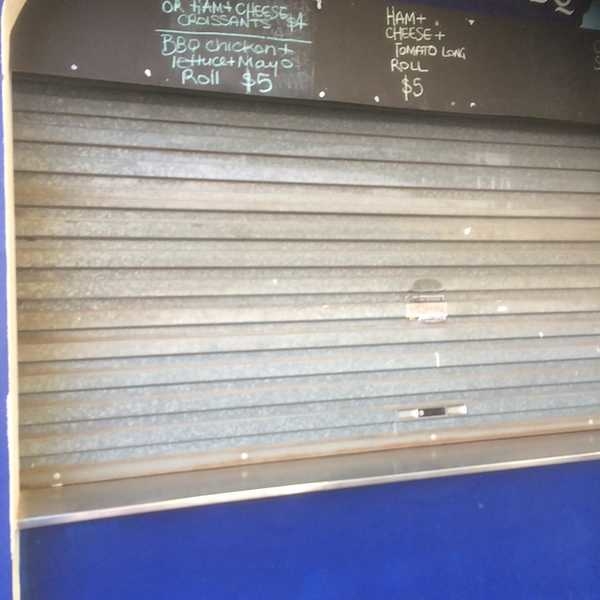 OR HAM+CHEESE
CROISSANTS $4
BBQ chicken+
lettuce+Mayo
Roll $5
HAM+
CHEESE+
TOMATO LONG
ROLL
$5